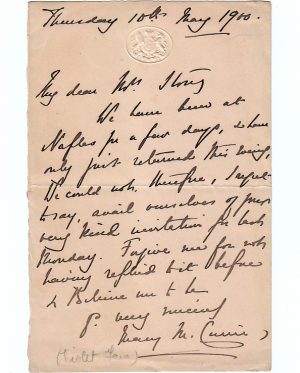 Thursday 10th May 1900.
My dear Mrs. Story
We have been at
Naples for a few days, & have
only just returned this evening,
We could not, therefore, I regret
to say, avail ourselves of your
very kind invitation for last
Monday. Forgive me for not
having replied to it before
& Believe me to be
very sincerely
Mary M. Currie
(Violet Fane)